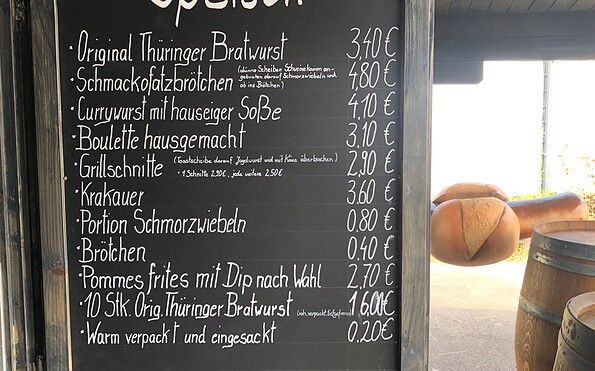 Speisen
· Original Thüringer Bratwurst 3,40 €
· Schmackofatzbrötchen (dünne Scheiben Schweinekamm an-
gebraten darauf Schmorzwiebeln und
ab ins Brötchen) 4,80 €
· Currywurst mit hauseiger Soße 4,10 €
· Boulette hausgemacht 3,10 €
· Grillschnitte (Toastscheibe darauf Jagdwurst und mit Käse überbacken) 2,90 €
· 1 Schnitte 2.90€, jede weitere 2.50€
· Krakauer 3.60 €
· Portion Schmorzwiebeln 0.80 €
· Brötchen 0.40 €
· Pommes frites mit Dip nach Wahl 2,70 €
· 10 Stk. Orig. Thüringer Bratwurst (roh, verpackt, 16,00€
· Warm verpackt und eingesackt 0,20€